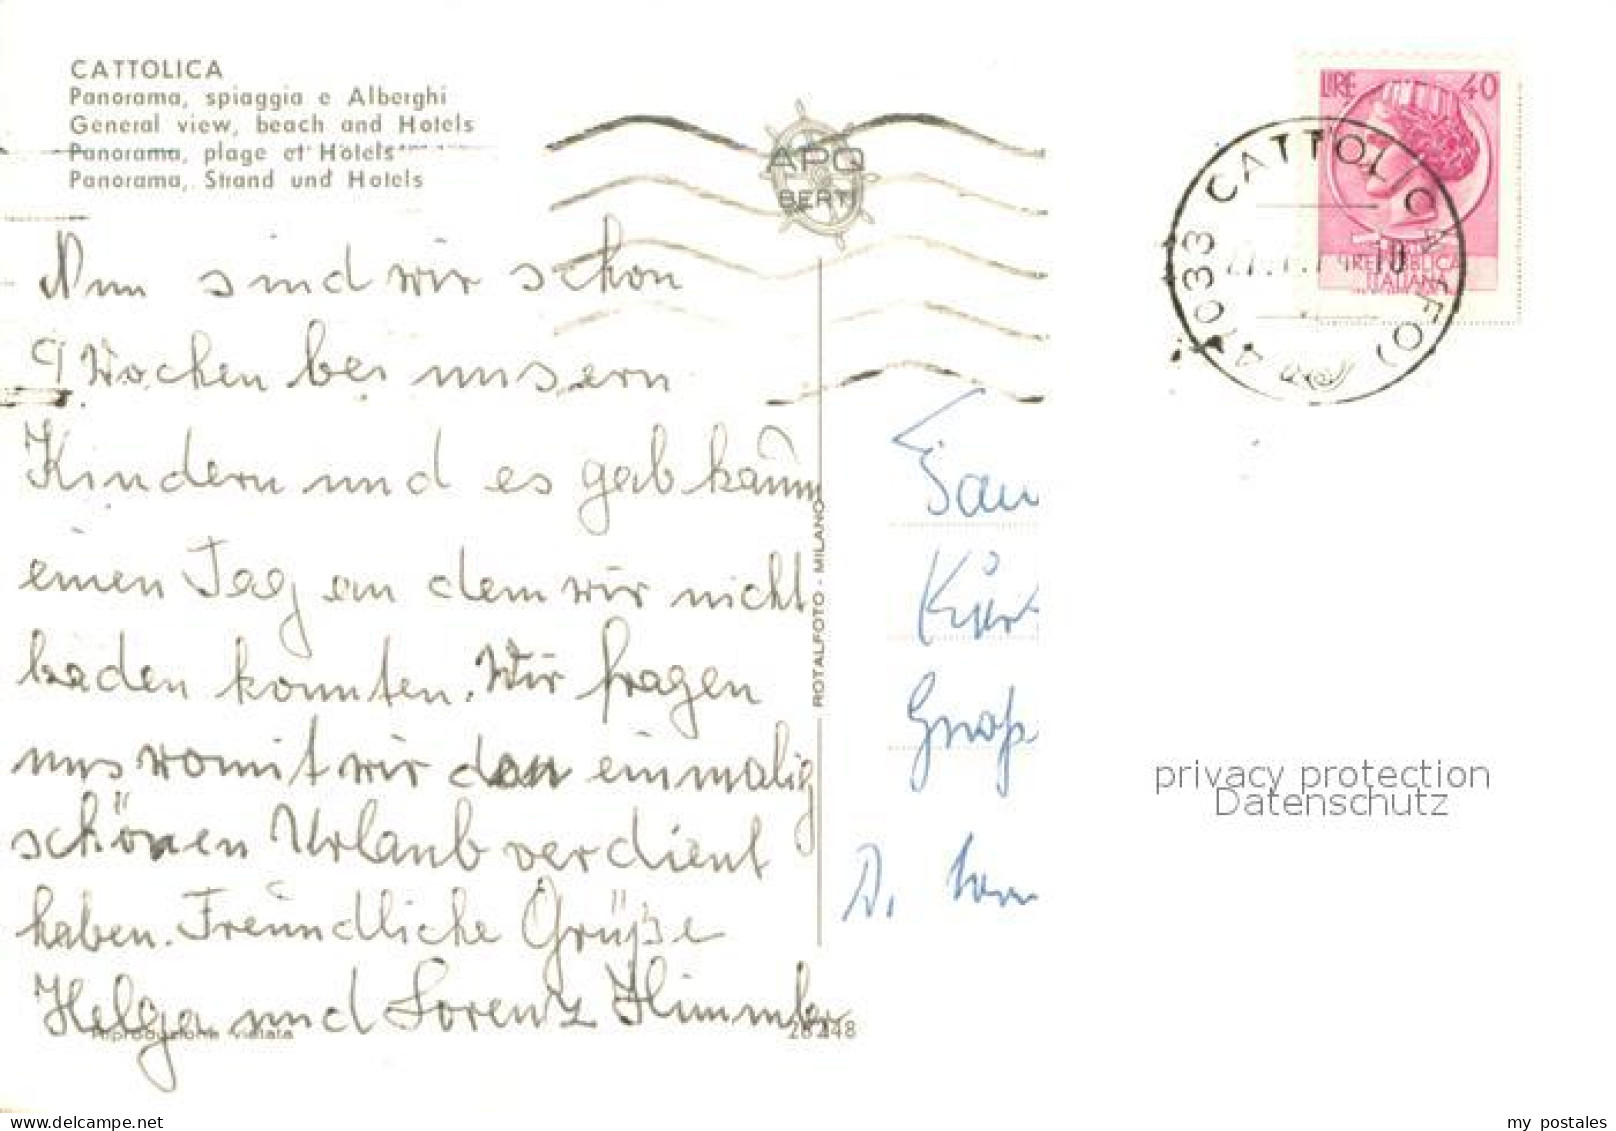 CATTOLICA
Panorama, spiaggia e Alberghi
General view, beach and Hotels
Panorama, plage et Hotels
Panorama, Strand und Hotels
APO
BERTI
LIRE 40
REPUBBLICA
ITALIANA
47033 CATTOLICA (FO)
Nun sind wir schon
9 Wochen bei unsern
Kindern und es gab kaum
einen Tag an dem wir nicht
baden konnten. Wir fragen
uns womit wir den einmalig
schönen Urlaub verdient
haben. Freundliche Grüße
Helga und Lorenz Himmler
ROTALFOTO - MILANO
Fam
Kur
Gnaß
Riproduzione vietata
privacy protection
Datenschutz
my postales